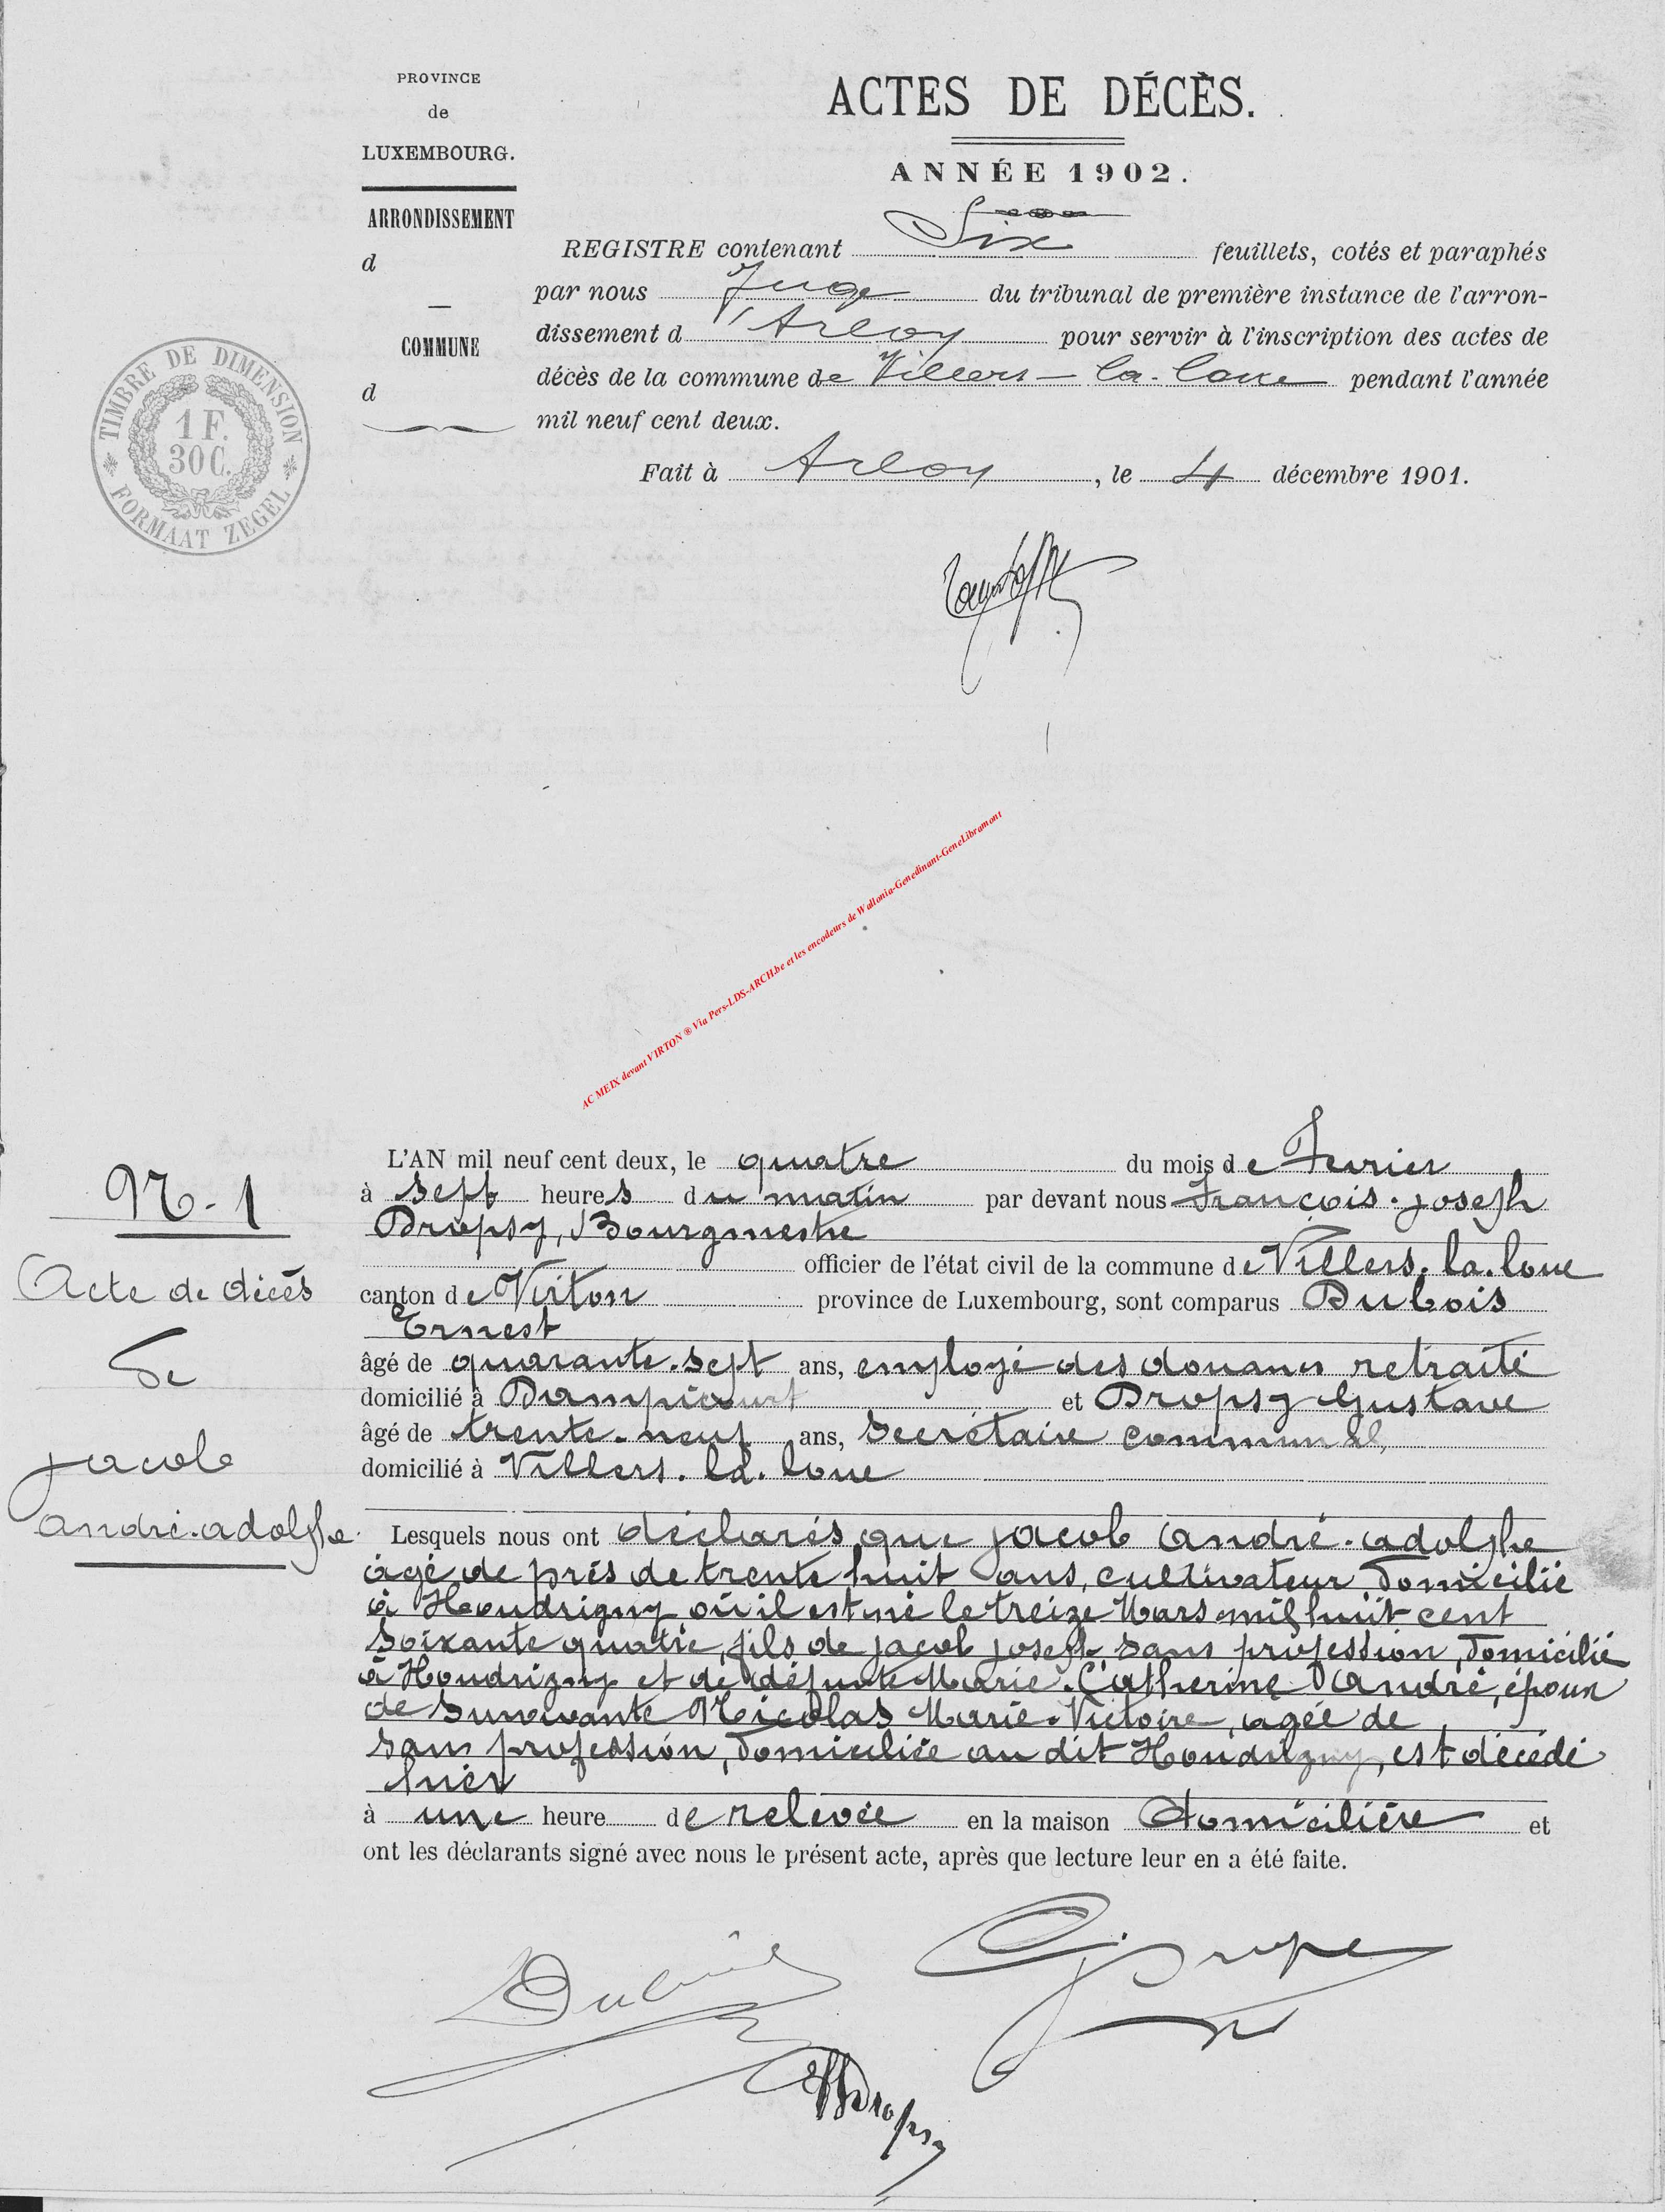 PROVINCE
de
LUXEMBOURG.
ARRONDISSEMENT
d
COMMUNE
d
TIMBRE DE DIMENSION
1 F.
30 C.
FORMAAT ZEGEL
ACTES DE DÉCÈS.
ANNÉE 1902.
REGISTRE contenant Six feuillets, cotés et paraphés
par nous Juge du tribunal de première instance de l'arron-
dissement d'Arlon pour servir à l'inscription des actes de
décès de la commune de Villers-la-loue pendant l'année
mil neuf cent deux.
Fait à Arlon, le 4 décembre 1901.
AC MEIX devant VIRTON ® Via Pers-LDS-ARCH.be et les encodeurs de Wallonia-Genedinant-GeneLibramont
N. 1
Acte de décès
de
jacob
andré.adolphe.
L'AN mil neuf cent deux, le quatre du mois de Fevrier
à sept heures du matin par devant nous François.joseph
Dropsy, Bourgmestre
officier de l'état civil de la commune de Villers.la.loue
canton de Virton province de Luxembourg, sont comparus Dubois
Ernest
âgé de quarante.sept ans, employé des douanes retraité
domicilié à Dampicourt et Dropsy Gustave
âgé de trente.neuf ans, secrétaire communal,
domicilié à Villers.la.loue
Lesquels nous ont déclarés que jacob andré.adolphe
âgé de près de trente huit ans, cultivateur, domicilié
à Houdrigny où il est né le treize Mars mil huit cent
soixante quatre, fils de jacob joseph sans profession, domicilié
à Houdrigny et de défunte Marie.Catherine andré, époux
de survivante Nicolas Marie.Victoire, agée de
sans profession, domiciliée au dit Houdrigny, est décédé
hier
à une heure de relevée en la maison domicilière et
ont les déclarants signé avec nous le présent acte, après que lecture leur en a été faite.
Dubois
Dropsy